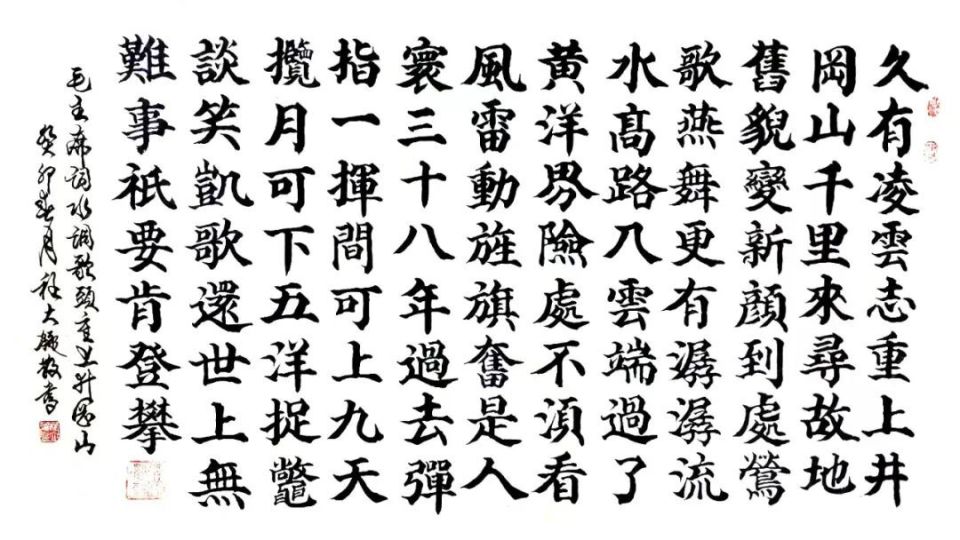 久有凌雲志重上井
岡山千里來尋故地
舊貌變新顏到處鶯
歌燕舞更有潺潺流
水高路入雲端過了
黃洋界險處不須看
風雷動旌旗奮是人
寰三十八年過去彈
指一揮間可上九天
攬月可下五洋捉鼈
談笑凱歌還世上無
難事祇要肯登攀
毛主席詞水調歌頭重上井岡山
癸卯春月 大 書